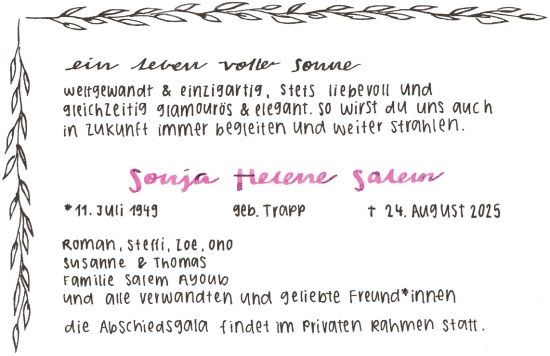 ein Leben voller Sonne
weltgewandt & einzigartig, stets liebevoll und
gleichzeitig glamourös & elegant. So wirst du uns auch
in Zukunft immer begleiten und weiter strahlen.
Sonja Helene Salem
*11. Juli 1949 geb. Trapp † 24. August 2025
Roman, Steffi, Zoe, Ono
Susanne & Thomas
Familie Salem Ayoub
und alle Verwandten und geliebte Freund*innen
die Abschiedsgala findet im privaten Rahmen statt.